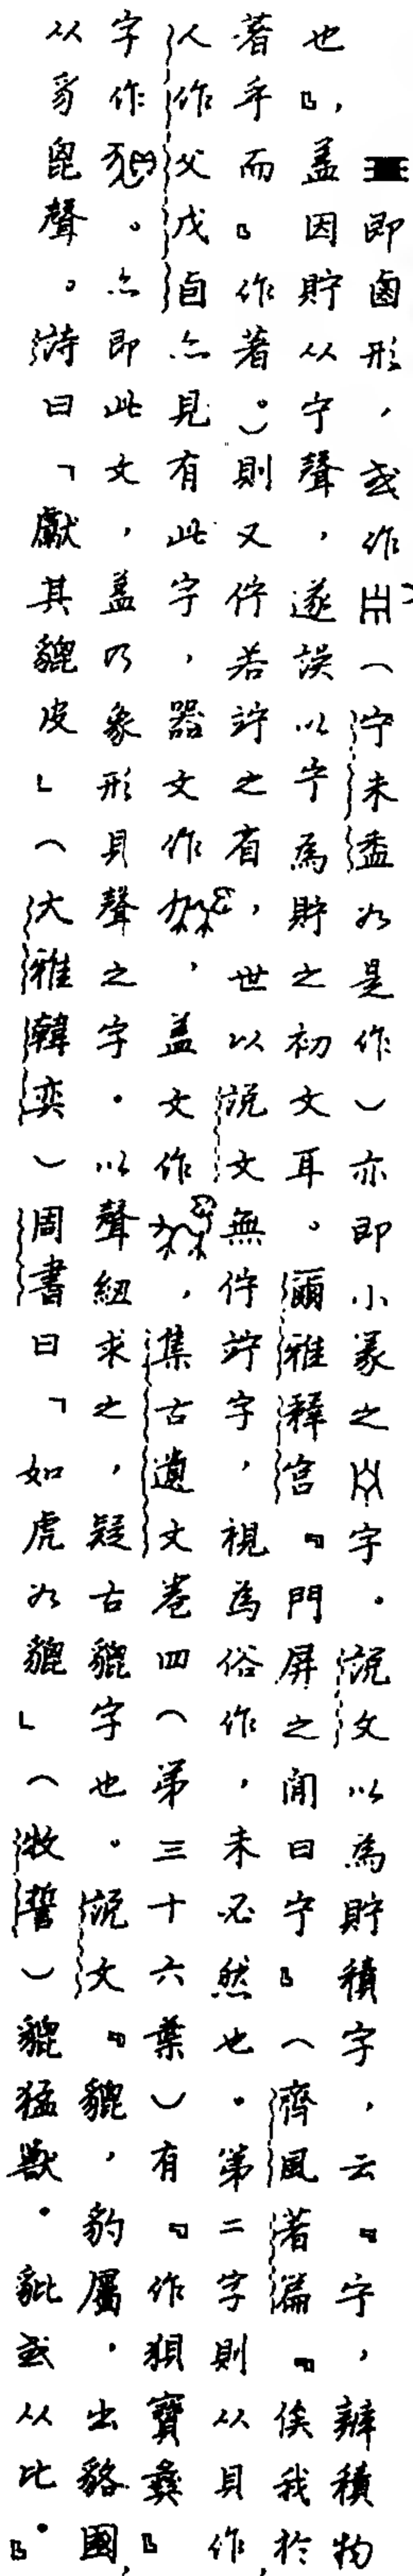 即鹵形，或作（宁未盉如是作）亦即小篆之字。説文以為貯積字，云『宁，辨積物
也』，蓋因貯从宁聲，遂誤以宁為貯之初文耳。爾雅釋宮『門屏之間曰宁』（齊風著篇『俟我於
著乎而』作著。）則又佇若竚之省，世以説文無佇竚字，視為俗作，未必然也。第二字則从貝作，
人作父戊卣亦見有此字，器文作，蓋文作，集古遺文卷四（第三十六葉）有『作狽寶彝』
字作。亦即此文，蓋乃象形貝聲之字。以聲紐求之，疑古貔字也。説文『貔，豹屬，出貉國，
从豸毘聲。詩曰「獻其貔皮」（大雅韓奕）周書曰「如虎如貔」（牧誓）貔猛獸。豼或从比。』